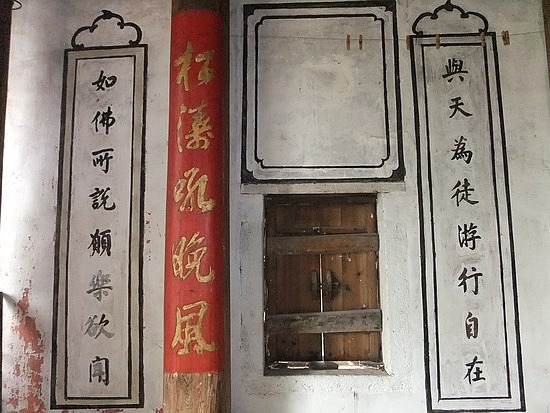 與天為徒游行自在
松濤吼晚風
如佛所說願樂欲聞